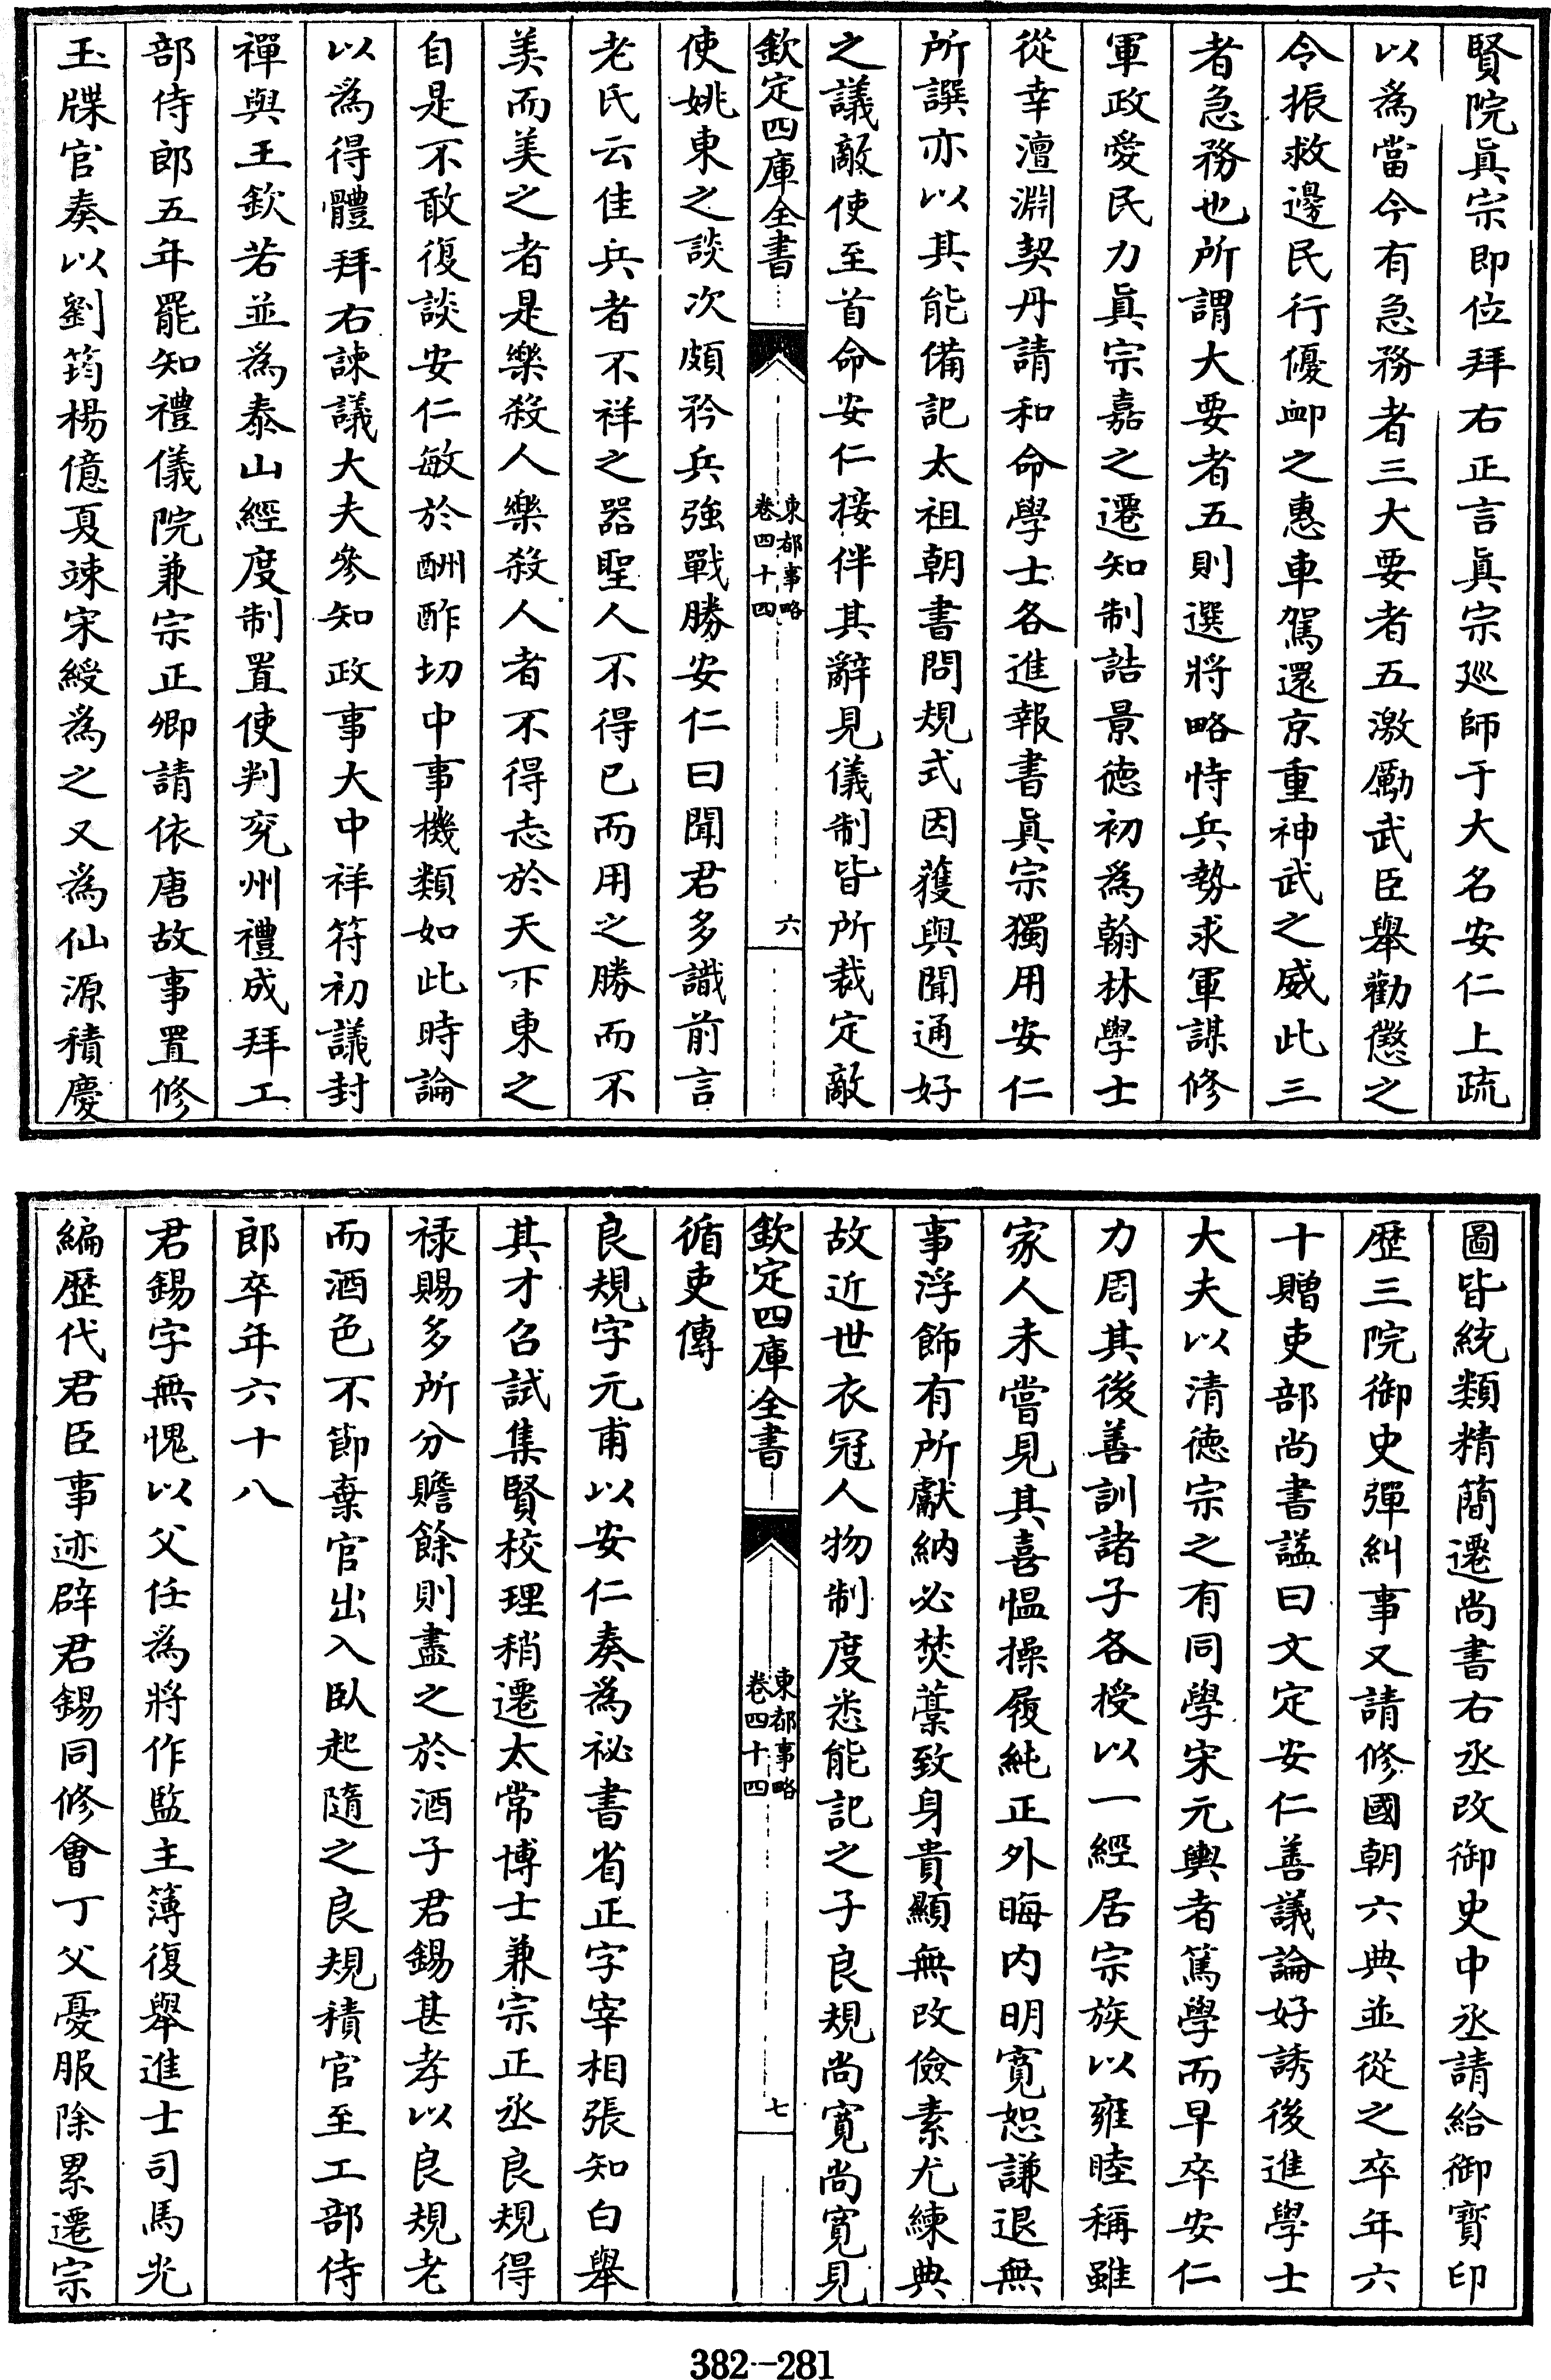 賢院真宗即位拜右正言真宗廵師于大名安仁上疏
以為當今有急務者三大要者五激勵武臣舉勸懲之
令振救邊民行優卹之惠車駕還京重神武之威此三
者急務也所謂大要者五則選將略恃兵勢求軍謀修
軍政愛民力真宗嘉之遷知制誥景徳初為翰林學士
從幸澶淵契丹請和命學士各進報書真宗獨用安仁
所譔亦以其能備記太祖朝書問規式因獲與聞通好
之議敵使至首命安仁接伴其辭見儀制皆所裁定敵
欽定四庫全書
東都事略
卷四十四
六
使姚東之談次頗矜兵強戰勝安仁曰聞君多識前言
老氏云佳兵者不祥之器聖人不得已而用之勝而不
美而美之者是樂殺人樂殺人者不得志於天下東之
自是不敢復談安仁敏於酬酢切中事機類如此時論
以為得體拜右諫議大夫參知政事大中祥符初議封
禪與王欽若並為泰山經度制置使判兖州禮成拜工
部侍郎五年罷知禮儀院兼宗正卿請依唐故事置修
玉牒官奏以劉筠楊億夏竦宋綬為之又為仙源積慶
圖皆統類精簡遷尚書右丞改御史中丞請給御寳印
歴三院御史彈糾事又請修國朝六典並從之卒年六
十贈吏部尚書諡曰文定安仁善議論好誘後進學士
大夫以清徳宗之有同學宋元輿者篤學而早卒安仁
力周其後善訓諸子各授以一經居宗族以雍睦稱雖
家人未嘗見其喜愠操履純正外晦内明寛恕謙退無
事浮飾有所獻納必焚藁致身貴顯無改儉素尤練典
故近世衣冠人物制度悉能記之子良規尚寛尚寛見
欽定四庫全書
東都事略
卷四十四
七
循吏傳
良規字元甫以安仁奏為祕書省正字宰相張知白舉
其才召試集賢校理稍遷太常博士兼宗正丞良規得
禄賜多所分贍餘則盡之於酒子君錫甚孝以良規老
而酒色不節棄官出入臥起隨之良規積官至工部侍
郎卒年六十八
君錫字無愧以父任為將作監主簿復舉進士司馬光
編歴代君臣事迹辟君錫同修會丁父憂服除累遷宗
382-281